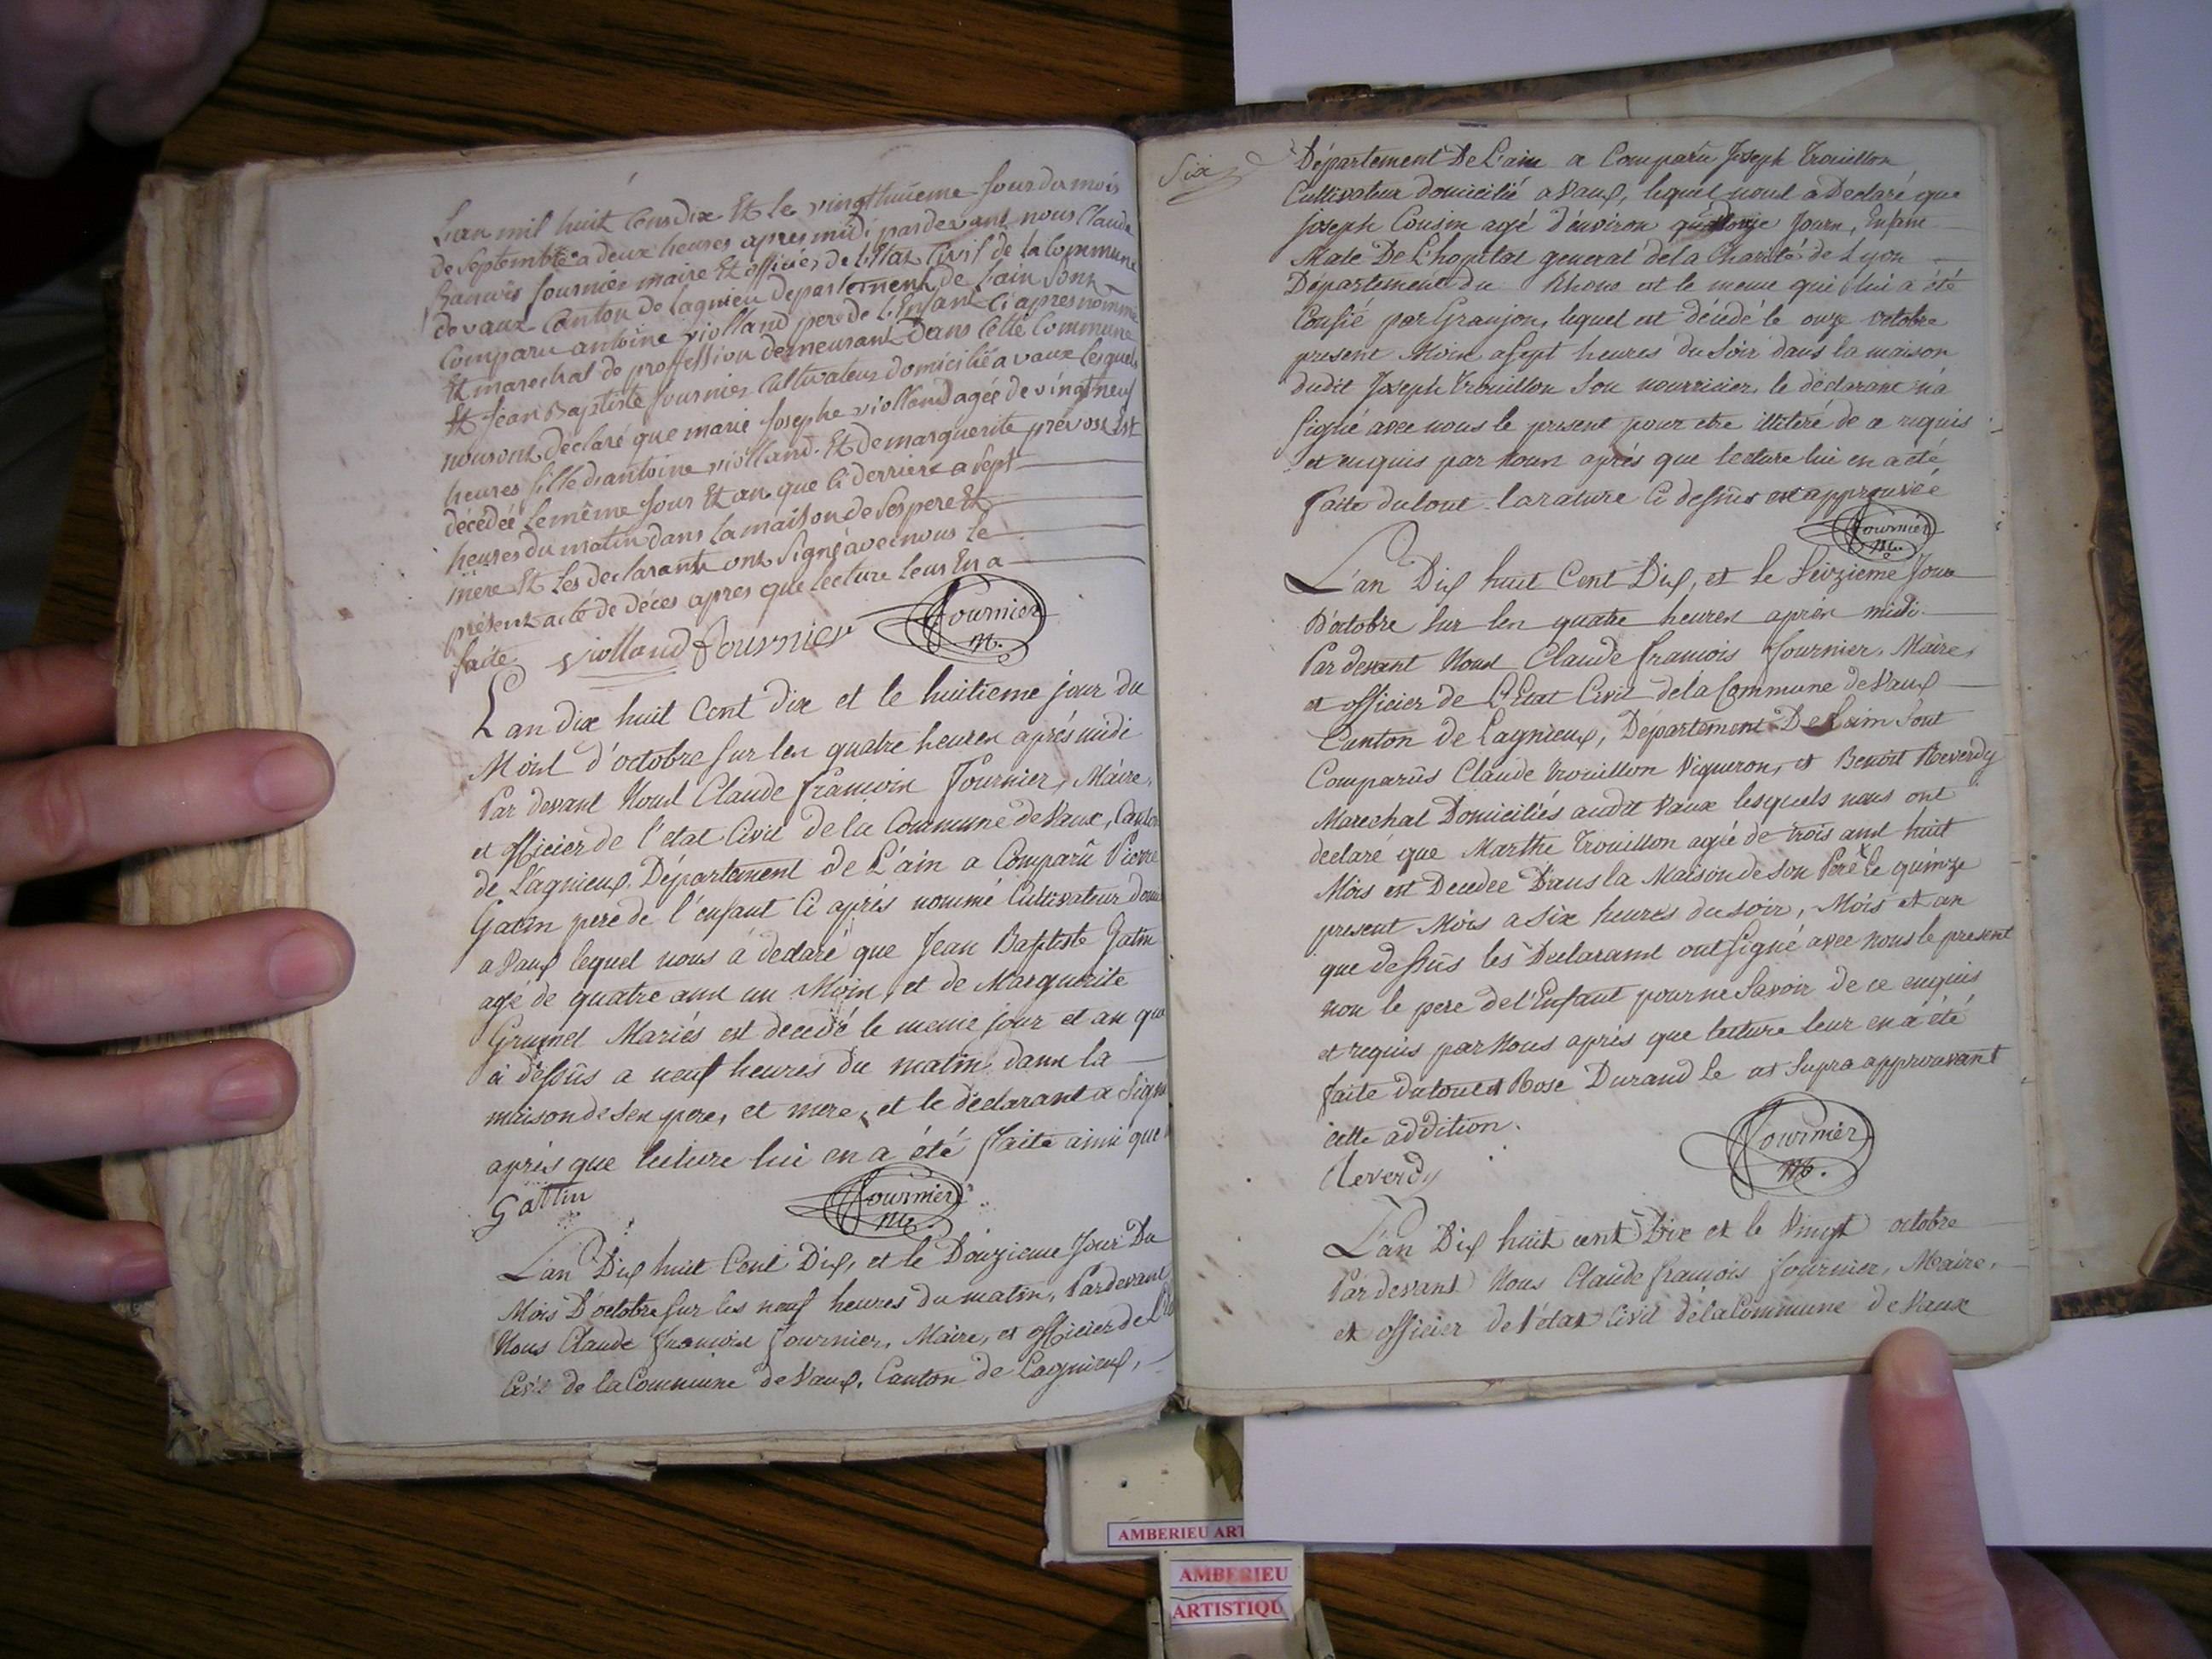 L'an mil huit Cens dix Et le vingthuitieme Jour du mois
de Septembre a deux heures apres midi pardevant nous Claude
francois fournier maire Et officier de L'Etat Civil de la Commune
de vaux Canton de Lagnieu departement de L'ain Sont
Comparu antoine violland pere de L'Enfant Ci apres nommé
Et marechal de proffession demeurant Dans Cette Commune
Et Jean Baptiste fournier Cultivateur domicilié a vaux Lesquels
nous ont déclaré que marie Josephe violland agée de vingt neuf
heures fille d'antoine violland Et de marguerite prévost Est
décédée Le même Jour Et an que Ci derriere a Sept
heures du matin dans La maison de Ses pere Et
mere Et Les declarants ont Signé avec nous Le
présent acte de déces apres que Lecture Leur En a
faite. violland fournier Fournier
m.
L'an dix huit Cent dix et le huitieme jour du
Mois d'octobre sur les quatre heures aprés midi
Par devant Nous Claude françois Fournier, Maire,
et officier de l'etat Civil de la Commune de Vaux, Canton
de Lagnieux, Département de L'ain a Comparû Pierre
Gatin pere de l'enfant Ci aprés nommé Cultivateur
a Vaux lequel nous à declaré que Jean Baptiste Gatin
agé de quatre ans un Mois, et de Marguerite
Grumel Mariés est decedé le meme jour et an que
ci dessûs a neuf heures du matin dans la
maison de ses pere, et mere, et le déclarant a signé
aprés que lecture lui en a été faite ainsi que
Gattin Fournier
m.
L'an Dix huit Cent Dix, et le Douzieme Jour Du
Mois D'octobre sur les neuf heures du matin, Pardevant
Nous Claude François Fournier, Maire, et officier de
Civil de la Commune de Vaux, Canton de Lagnieux,
Six
Département De L'ain a Comparû Joseph Trouillon
Cultivateur domicilié a Vaux, lequel nous a Declaré que
joseph Cousin agé d'environ jours, Enfant
Male De L'hopital general de la Charité de Lyon
Département du Rhone est le meme qui lui a été
Confié par Granjon, lequel est décedé le onze octobre
present Mois a sept heures du Soir dans la maison
dudit Joseph Trouillon Son nourricier, le déclarant n'a
signé avec nous le present pour etre illiteré de ce requis
et enquis par nous aprés que lecture lui en a eté
faite du tout. la rature Ci dessûs est approuvée
Fournier
m.
L'an Dix huit Cent Dix, et le Seizieme Jour
D'octobre sur les quatre heures aprés midi
Par devant Nous Claude francois fournier, Maire,
et officier de L'Etat Civil de la Commune de Vaux
Canton de Lagnieux, Departement De Lain Sont
Comparûs Claude Trouillon Vigneron, et Benoit Reverdy
Marechal Domiciliés audit Vaux lesquels nous ont
declaré que Marthe Trouillon agée de trois ans huit
Mois est Decedée Dans la Maison de son Pere x Le quinze
present Mois a six heures du soir, Mois et an
que dessûs les Declarants ont signé avec nous le present
non le pere de l'Enfant pour ne Savoir de ce enquis
et requis par Nous aprés que lecture leur en a été
faite du tout x et Rose Durand Le ut Supra approuvant
cette addition.
Reverdy Fournier
m.
L'an Dix huit cent Dix et le Vingt octobre
Par devant Nous Claude françois fournier, Maire,
et officier de l'état Civil de la Commune de Vaux
AMBERIEU ART
AMBERIEU
ARTISTIQU